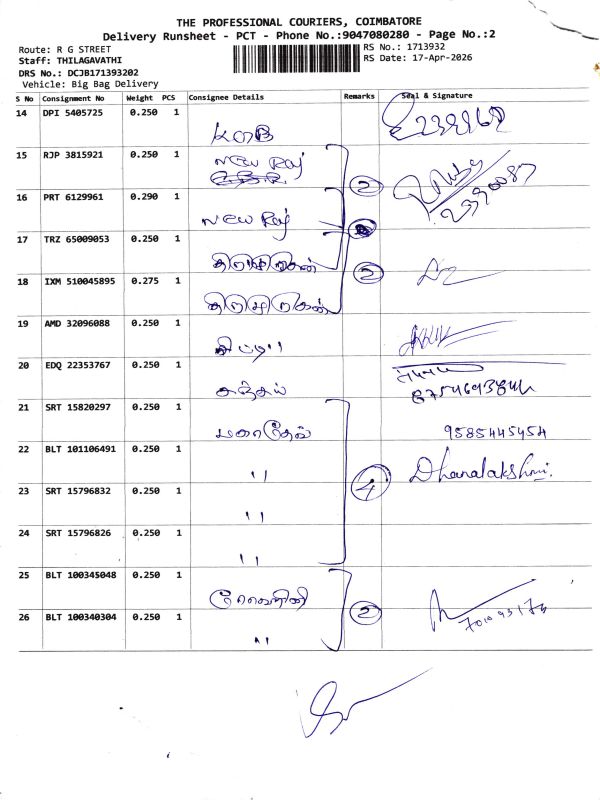 THE PROFESSIONAL COURIERS, COIMBATORE
Delivery Runsheet - PCT - Phone No.:9047080280 - Page No.:2
Route: R G STREET
RS No.: 1713932
Staff: THILAGAVATHI
RS Date: 17-Apr-2026
DRS No.: DCJB171393202
Vehicle: Big Bag Delivery
S No Consignment No Weight PCS Consignee Details Remarks Seal & Signature
14 DPI 5405725 0.250 1
15 RJP 3815921 0.250 1
New Raj
2
16 PRT 6129961 0.290 1
New Raj
17 TRZ 65009053 0.250 1
2
18 IXM 510045895 0.275 1
19 AMD 32096088 0.250 1
20 EDQ 22353767 0.250 1
21 SRT 15820297 0.250 1
மகாதேவ்
9585445454
22 BLT 101106491 0.250 1
" 4 Dhanalakshmi
23 SRT 15796832 0.250 1
"
24 SRT 15796826 0.250 1
"
25 BLT 100345048 0.250 1
26 BLT 100340304 0.250 1
" 2